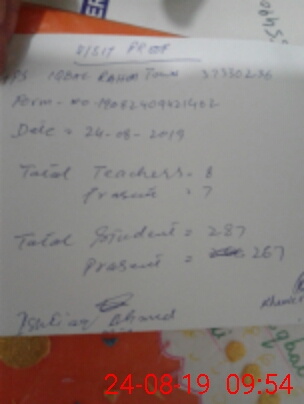 VISIT PROOF
PS IQBAL Town 37330236
Form-No-M082409421402
Date = 24-08-2019
Total Teachers = 8
Prasent = 7
Total Student = 287
Prasent = 267
Ahmed
24-08-19 09:54